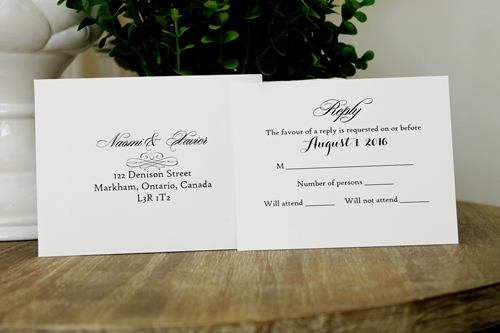 Naomi & Xavier
122 Denison Street
Markham, Ontario, Canada
L3R 1T2
Reply
The favour of a reply is requested on or before
August 1, 2016
M
Number of persons
Will attend Will not attend